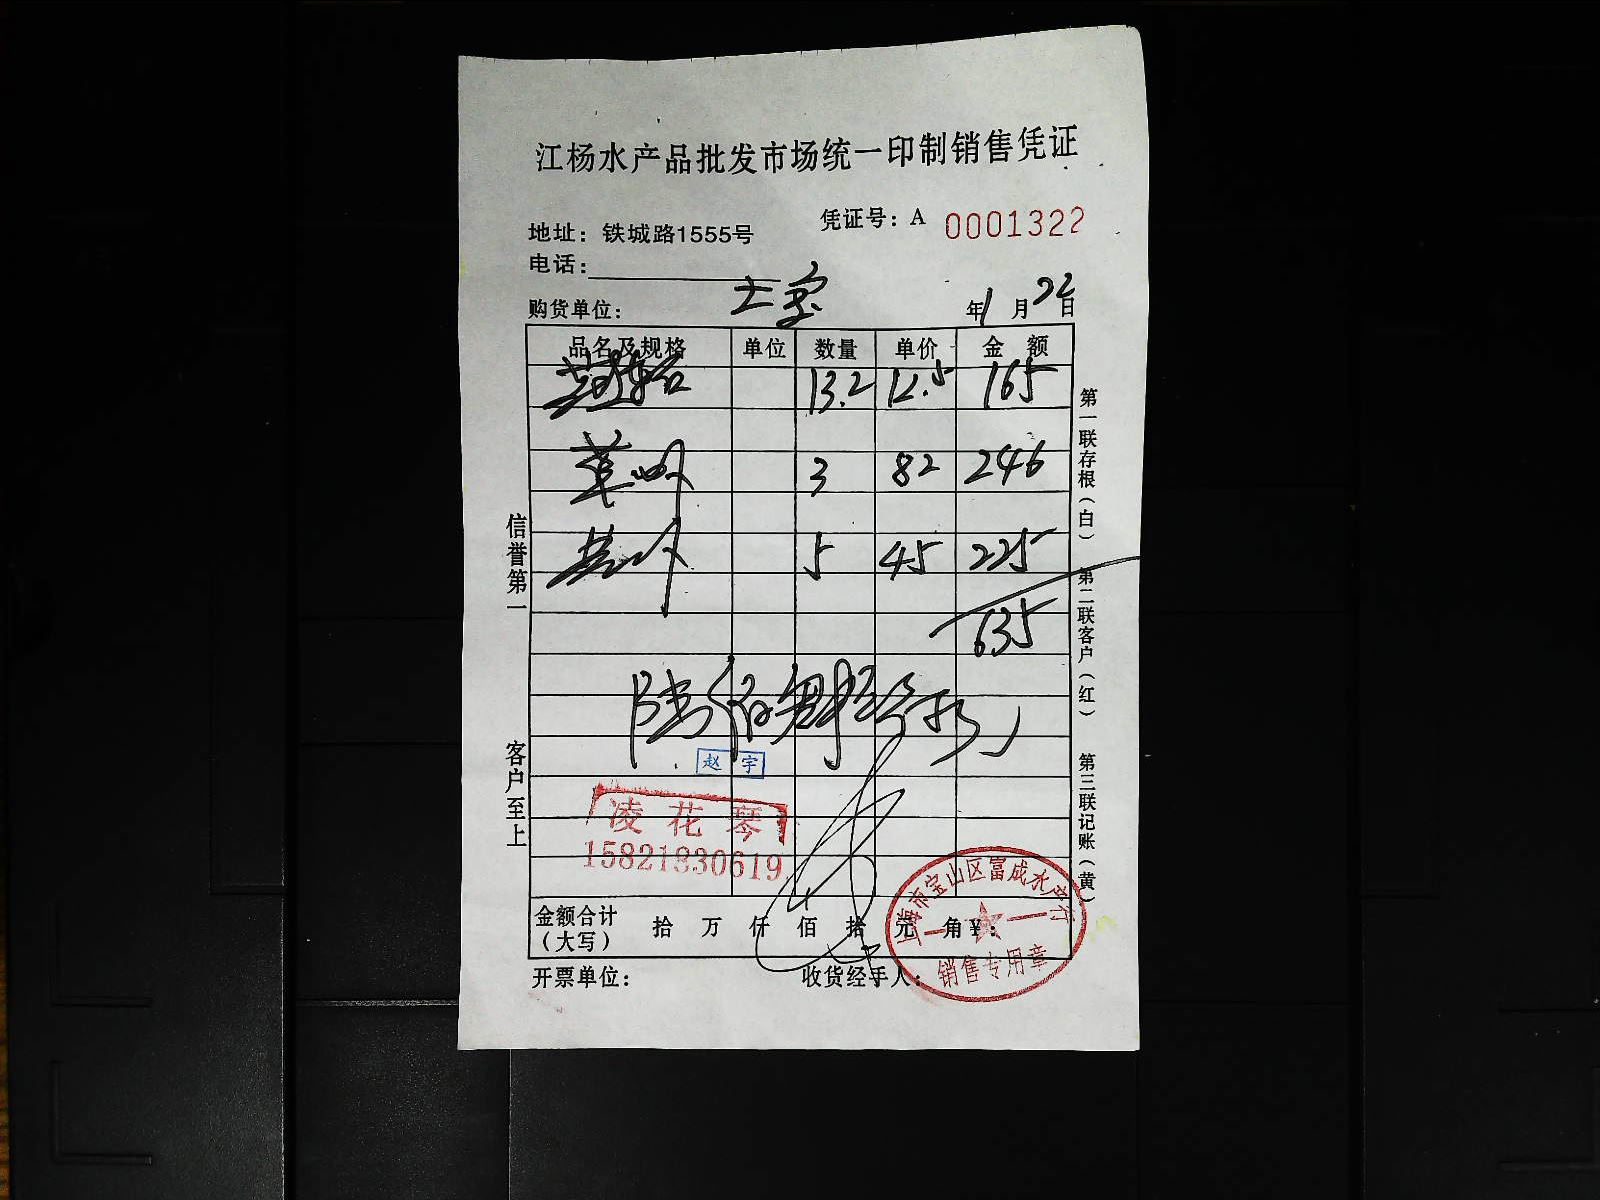 江杨水产品批发市场统一印制销售凭证
凭证号：A 0001322
地址：铁城路1555号
电话：
购货单位：
年1月22日
品名及规格 单位 数量 单价 金额
13.2 12.5 165
3 82 246
5 45 225
635
赵宇
凌花琴
15821930619
金额合计（大写） 拾 万 仟 佰 拾 元 角 ¥：
开票单位： 收货经手人：
上海市宝山区富成水产行
销售专用章
信誉第一
客户至上
第一联存根（白） 第二联客户（红） 第三联记账（黄）